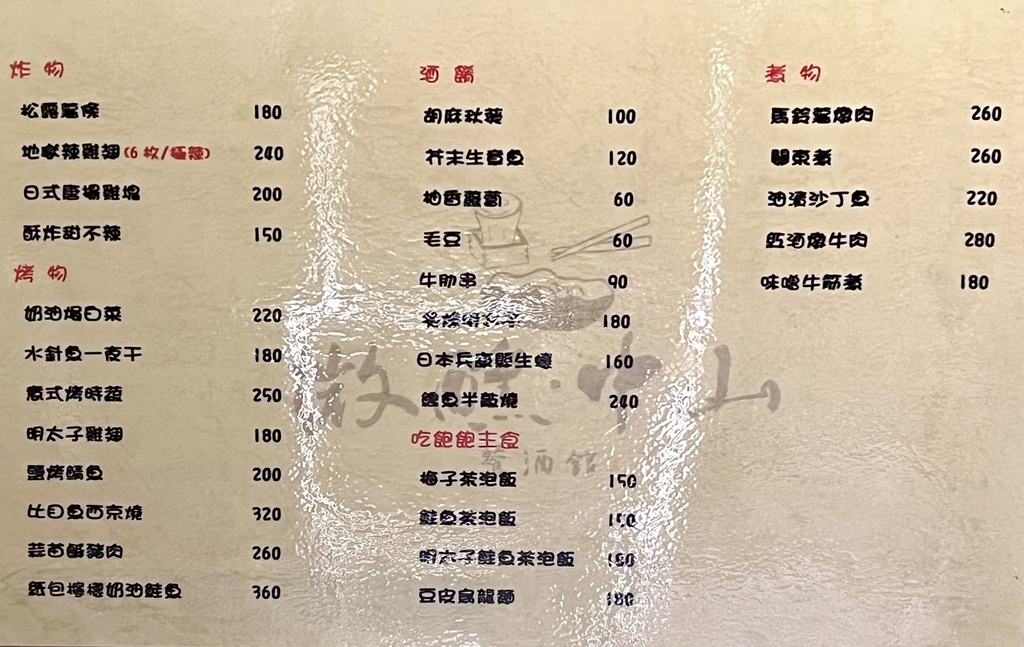 炸物
松露薯條 180
地獄辣雞翅(6枚/極辣) 240
日式唐揚雞塊 200
酥炸甜不辣 150
烤物
奶油焗白菜 220
水針魚一夜干 180
意式烤時蔬 250
明太子雞翅 180
鹽烤鯖魚 200
比目魚西京燒 320
蒜苗鹹豬肉 260
紙包檸檬奶油鮭魚 360
酒餚
胡麻秋葵 100
芥末生章魚 120
柚香蘿蔔 60
毛豆 60
牛肋串 90
180
日本兵庫縣生蠔 160
鰹魚半敲燒 240
吃飽飽主食
梅子茶泡飯 150
鮭魚茶泡飯 150
明太子鮭魚茶泡飯 180
豆皮烏龍麵 180
煮物
馬鈴薯燉肉 260
關東煮 260
油漬沙丁魚 220
紅酒燉牛肉 280
味噌牛筋煮 180
中山
餐酒館